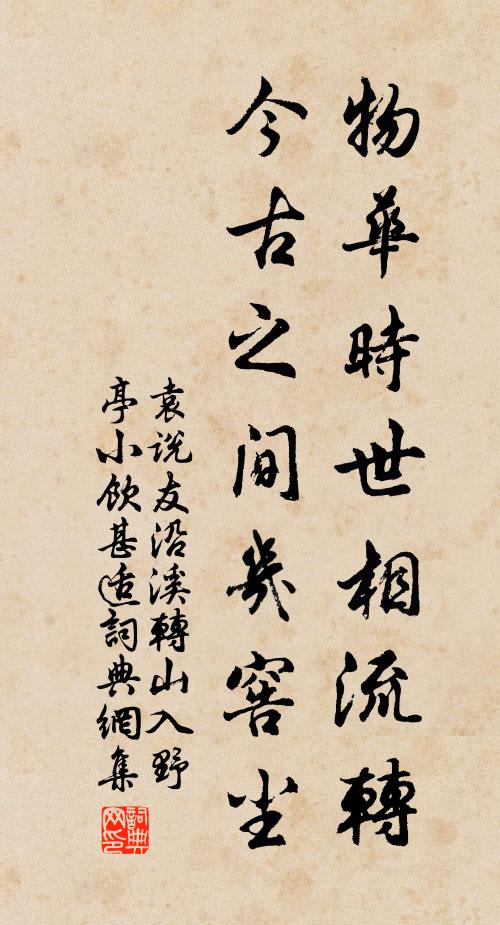 物華時世相流轉
今古之間幾窖尘
袁說友沿溪轉山入野
亭小飲甚适詞典網集
詞典网印